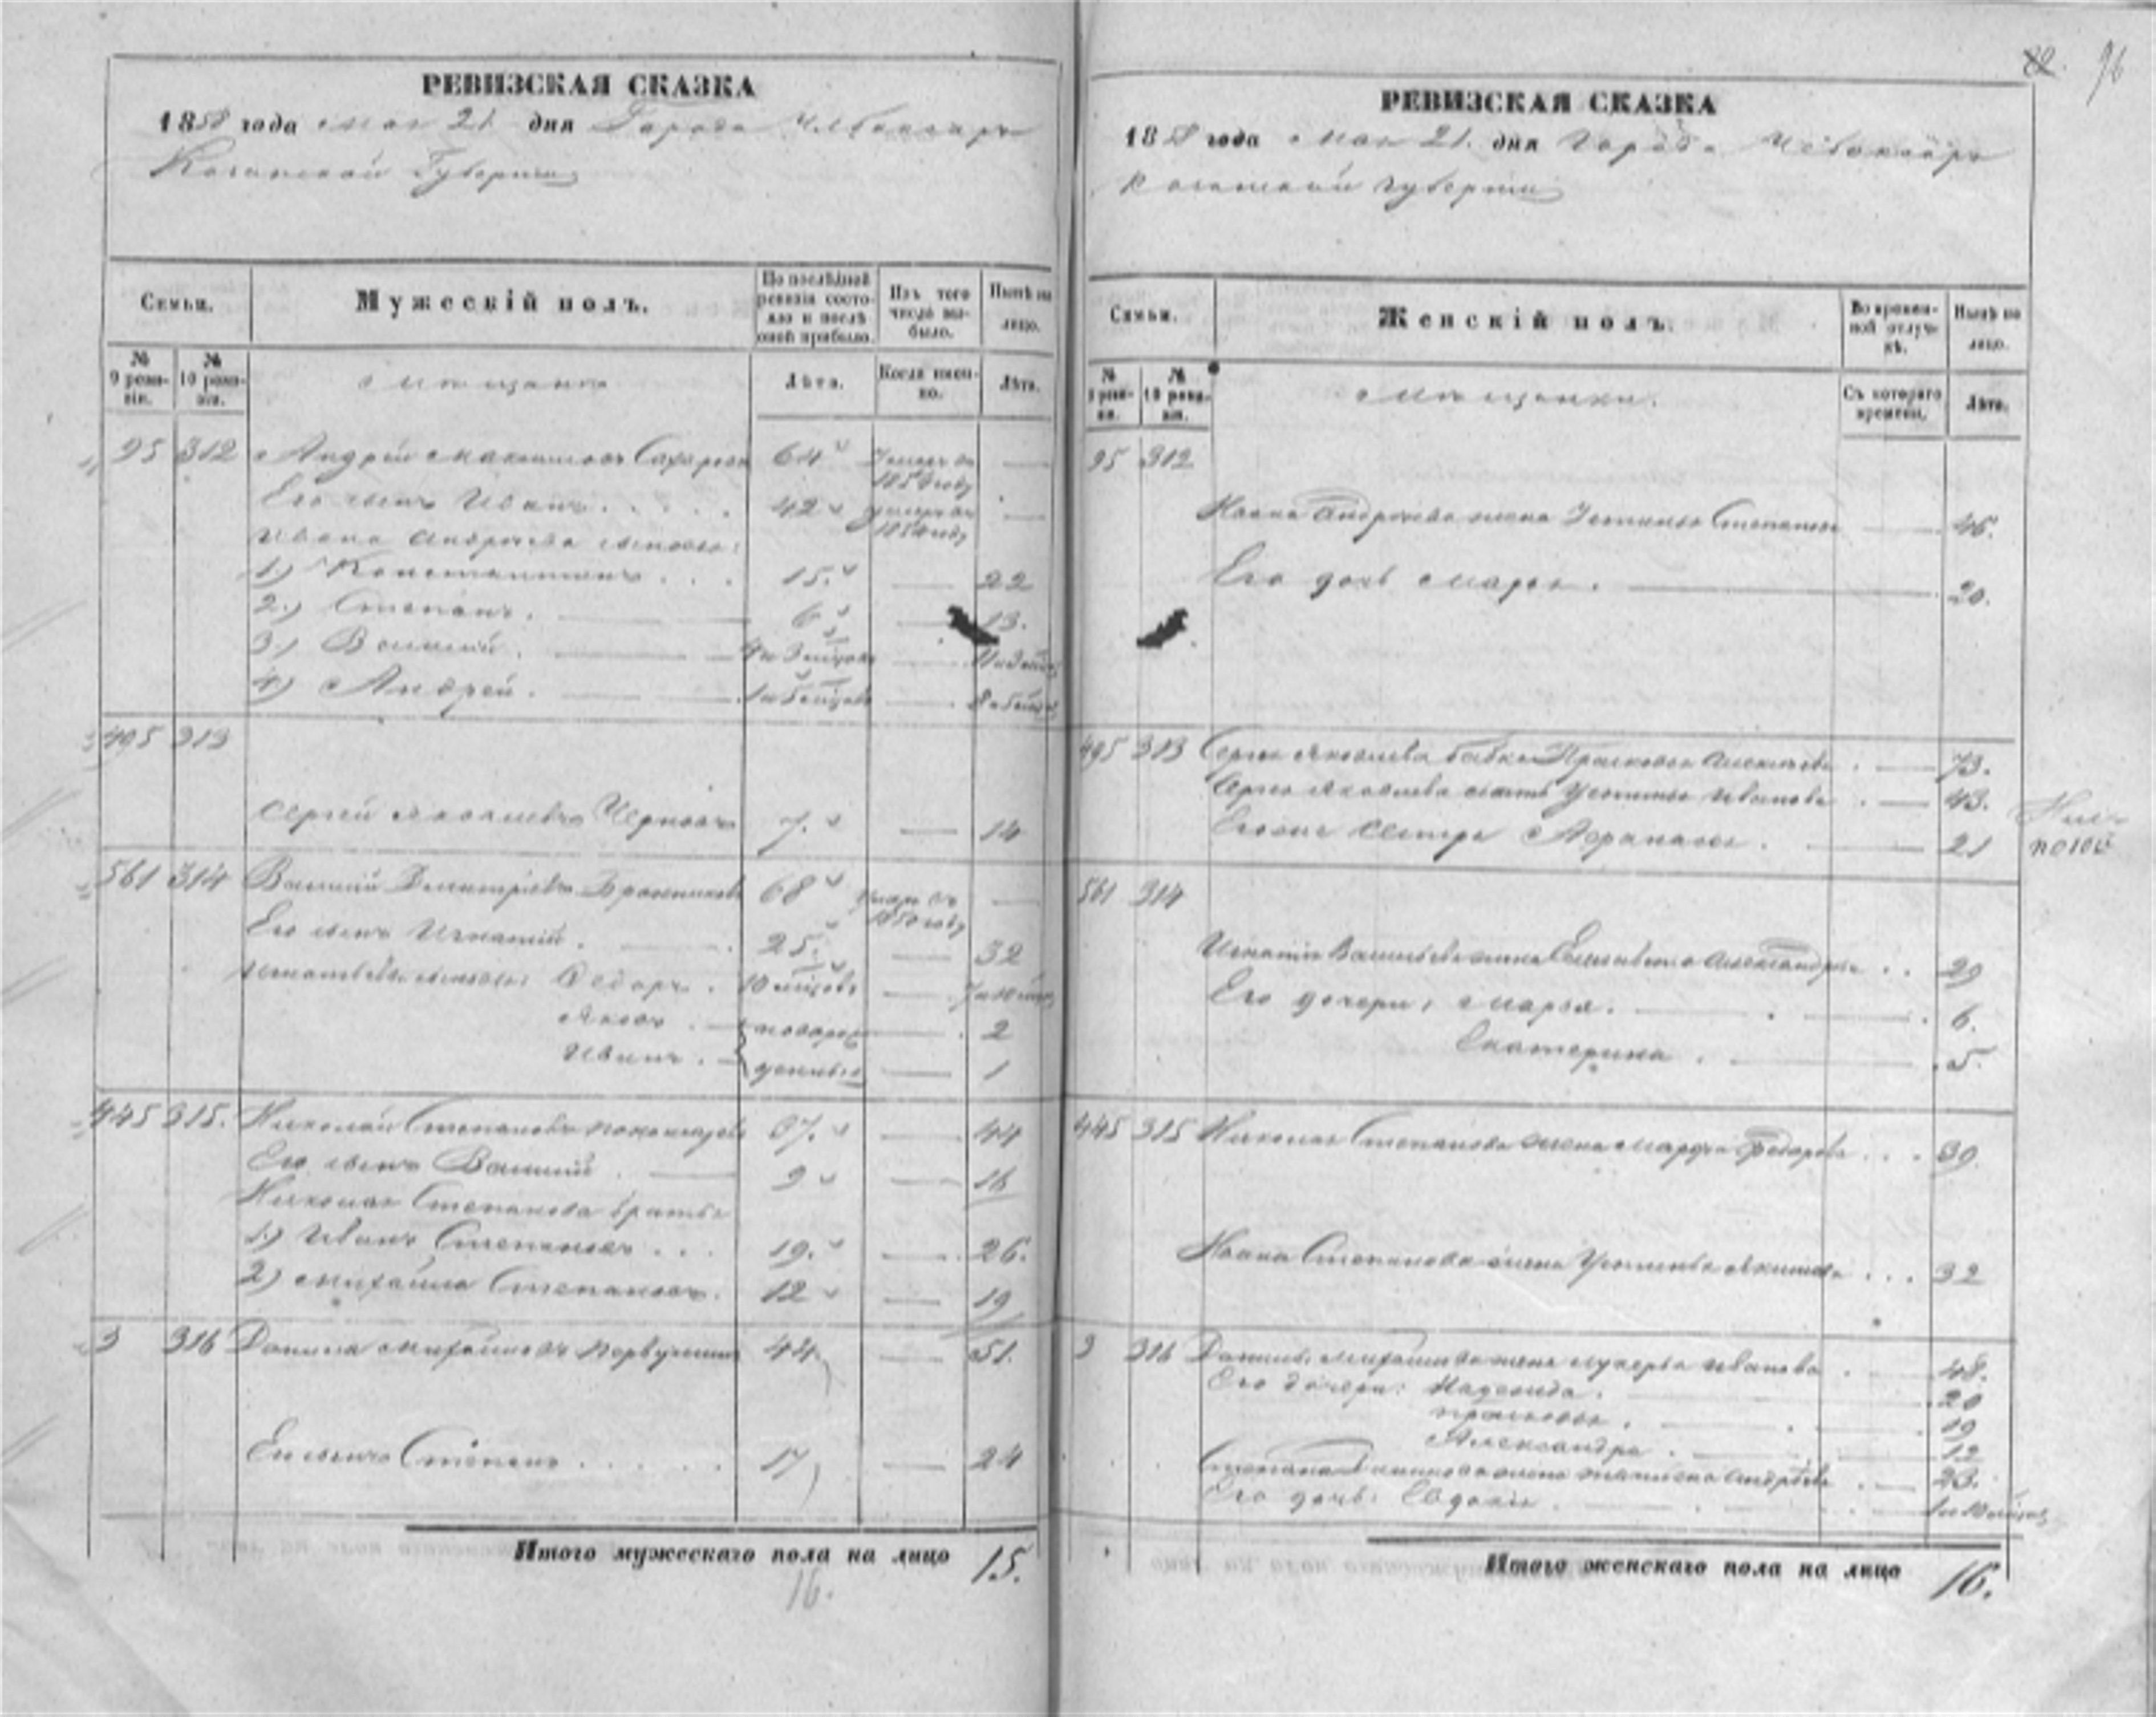 22. 96
РЕВИЗСКАЯ СКАЗКА
1858 года мая 21 дня Города Чебоксаръ
Казанской Губернии
Семьи.
Мужескій полъ.
По послѣдней ревизіи состояло и послѣ оной прибыло.
Изъ того числа выбыло.
Нынѣ на лицо.
№ 9 ревизіи.
№ 10 ревизіи.
мѣщане
Лѣта.
Когда именно.
Лѣта.
95 312 Андрей Максимовъ Сахаровъ 64 — 
Его сынъ Иванъ 42 умеръ въ —
Ивана Андреева сыновья:
1.) Константинъ 15. — 22
2.) Степанъ. 6 — 13.
3.) Василій.
4.) Андрей.
495 313
Сергей Яковлевъ Черновъ 7. — 14
561 314 Василій Дмитріевъ 68 умеръ въ 1850 году —
Его сынъ Игнатій. 25. — 32
Игнатьевы сыновья: Федоръ. 10 мѣсцовъ —
Яковъ. новорож — 2
Иванъ. денные — 1
445 315. Николай Степановъ 37. — 44
Его сынъ Василій 9 — 16
Николая Степанова братья
1.) Иванъ Степановъ 19. — 26.
2) Михайла Степановъ. 12 — 19
3 316 Данила Михайловъ Первушинъ 44 — 51.
Ево сынъ Степанъ 17 — 24
Итого мужескаго пола на лицо 15.
16.
РЕВИЗСКАЯ СКАЗКА
1858 года мая 21. дня Города Чебоксаръ
Казанской губерніи
Семьи.
Женскій полъ.
Во временной отлучкѣ.
Нынѣ на лицо.
№ 9 ревизіи.
№ 10 ревизіи.
мѣщанки.
Съ котораго времени.
Лѣта.
95 312
Ивана Андреева жена Устинья Степанова — 46.
Его дочь Марья. — 20.
495 313 Сергея Яковлева бабка Прасковья Алексеева — 73.
Сергея Яковлева мать Устинья Иванова — 43.
Еговая сестра — 21
561 314
Игнатія Васильева жена Елизавета Александрова 29
Его дочери: Марья. — 6.
Екатерина. — 5.
445 315 Николая Степанова жена Марфа Федорова 39
Ивана Степанова жена Устинья 32
3 316 Данилы Михайлова жена Лукерья Иванова — 48.
Его дочери: Надежда. 20
Прасковья. 19
Александра. 12
Степана Данилова жена Андреева — 23.
Его дочь: Евдокия.
Итого женскаго пола на лицо 16.